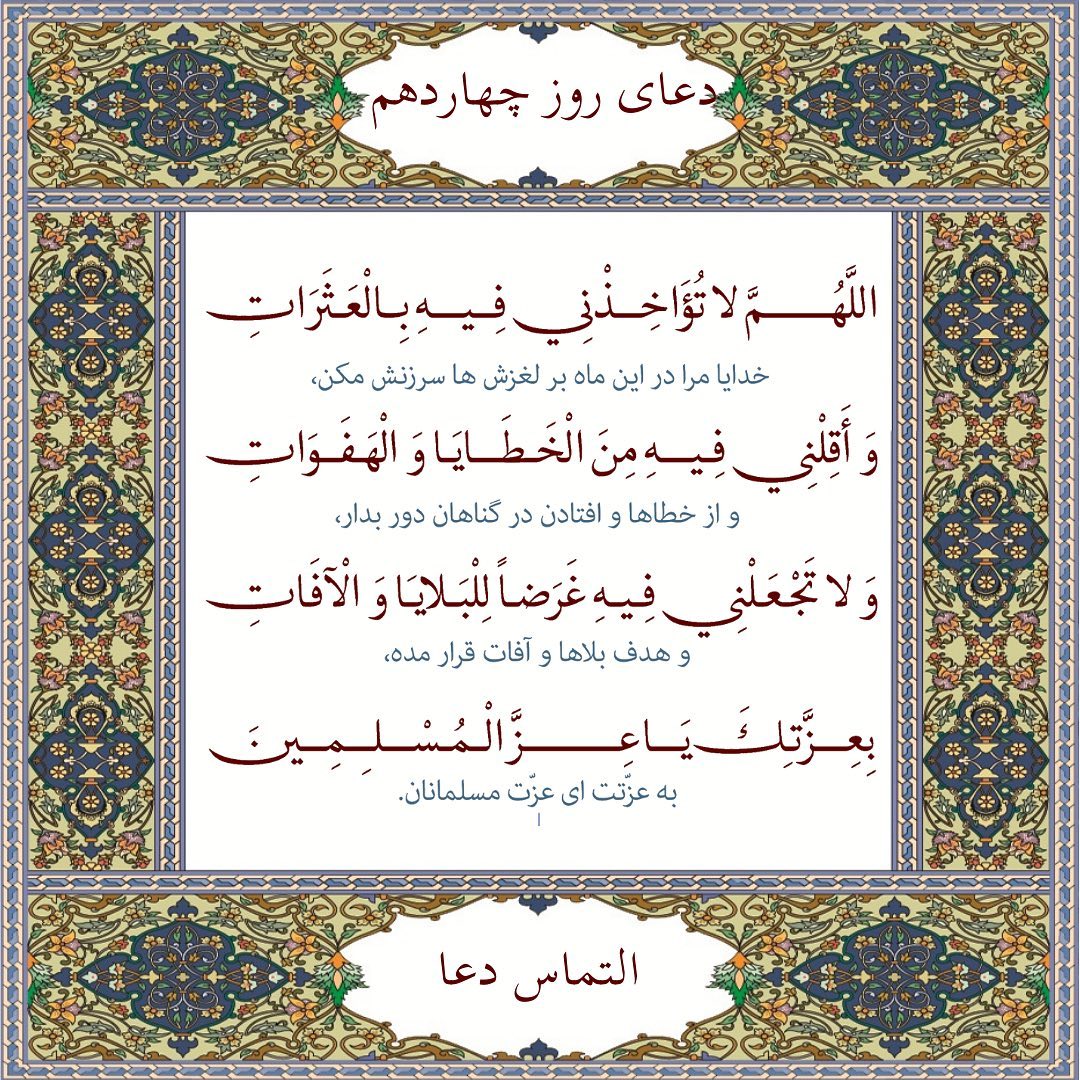 دعای روز چهاردهم
اللَّهُمَّ لا تُؤَاخِذْنِي فِيهِ بِالْعَثَرَاتِ
خدایا مرا در این ماه بر لغزش ها سرزنش مکن،
وَ أَقِلْنِي فِيهِ مِنَ الْخَطَايَا وَ الْهَفَوَاتِ
و از خطاها و افتادن در گناهان دور بدار،
وَ لا تَجْعَلْنِي فِيهِ غَرَضاً لِلْبَلايَا وَ الْآفَاتِ
و هدف بلاها و آفات قرار مده،
بِعِزَّتِكَ يَا عِزَّ الْمُسْلِمِينَ
به عزّتت ای عزّت مسلمانان.
ا
التماس دعا